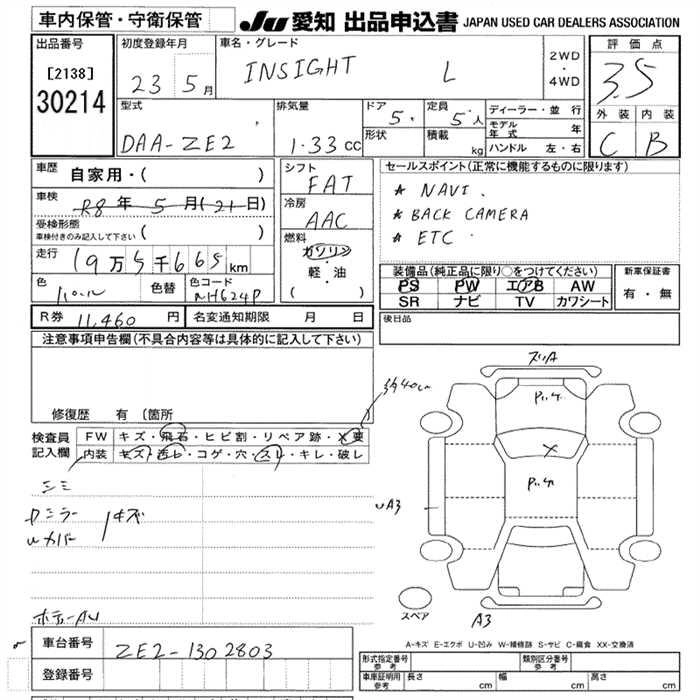 車内保管・守衛保管
JU 愛知 出品申込書 JAPAN USED CAR DEALERS ASSOCIATION
出品番号
[2138]
30214
初度登録年月
23 5月
車名・グレード
INSIGHT L
2WD
・
4WD
評価点
3.5
外装 内装
C B
型式
DAA-ZE2
排気量
1.33cc
ドア
5
形状
定員
5人
積載
kg
ディーラー・並行
モデル年式 年
ハンドル 左・右
車歴
自家用・( )
車検
R8年5月(21日)
受検形態
車検付きのみ記入して下さい
( )
走行
19万5千665km
色
色替
色コード
NH624P
シフト
FAT
冷房
AAC
燃料
ガソリン
軽・油
( )
セールスポイント(正常に機能するものに限ります)
★ NAVI.
★ BACK CAMERA
★ ETC
装備品(純正品に限り○をつけてください)
PS PW エアB AW
SR ナビ TV カワシート
新車保証書
有・無
R券 11,460円
名変通知期限 月 日
後日品
注意事項申告欄(不具合内容等は具体的に記入して下さい)
修復歴 有 [箇所
検査員記入欄
FW キズ・飛石・ヒビ割・リペア跡・X要
内装 キズ・汚レ・コゲ・穴・スレ・キレ・破レ
約40cm
シミ
キズ
スリA
A3
スペア
A3
A-キズ E-エクボ U-凹み W-補修跡 S-サビ C-腐食 XX-交換済
車台番号
ZE2-1302803
登録番号
形式指定番号
参考
類別区分番号
参考
車庫証明用
参考
長さ cm
幅 cm
高さ cm